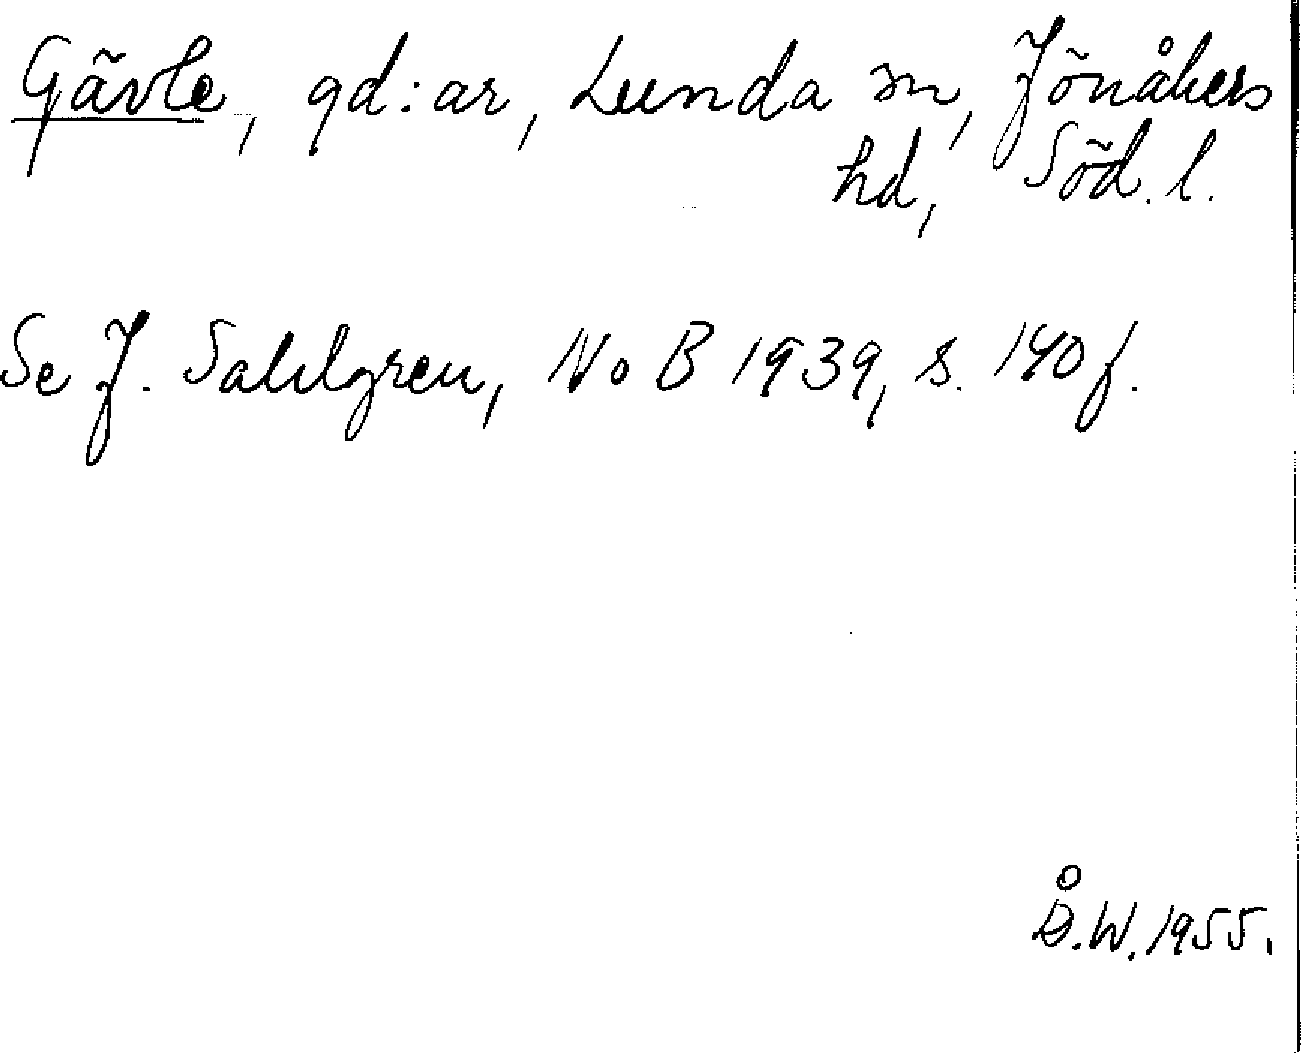 Gävle, gd:ar, Lunda sn, Jönåkers
hd, Söd. l.
Se J. Sahlgren, NoB 1939, s. 140 f.
Å.W. 1955.